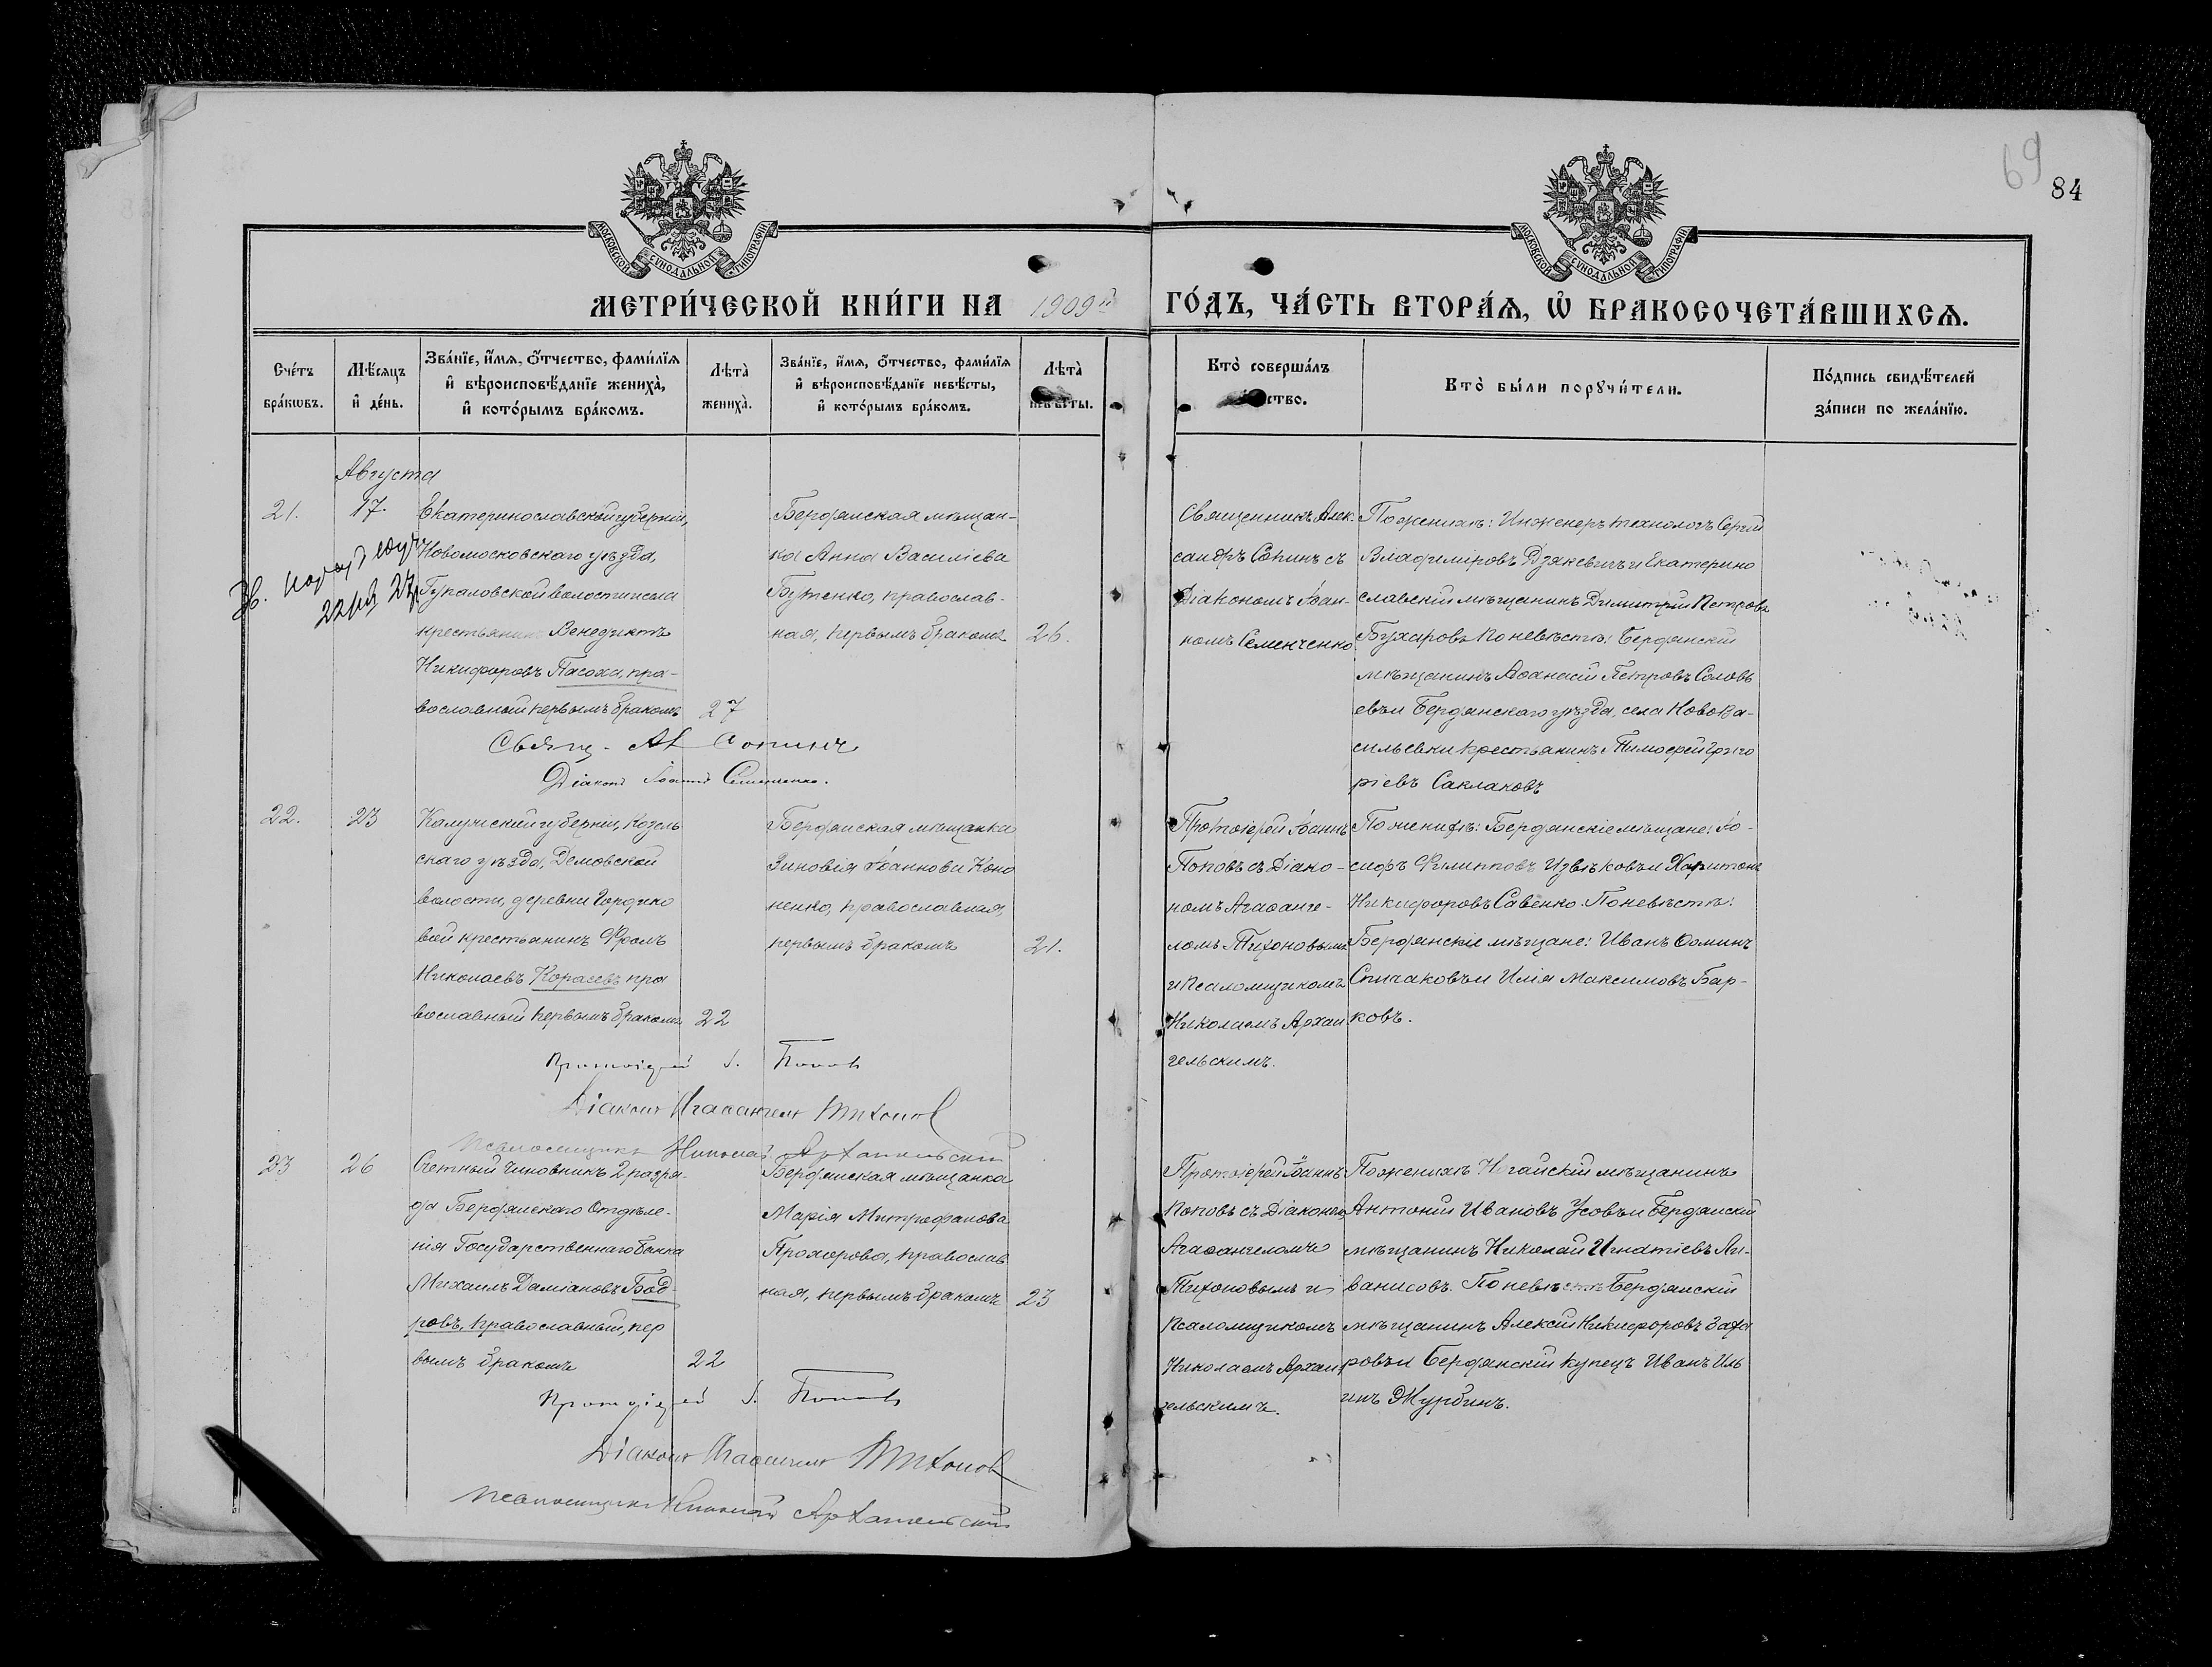 69
84
МОСКОВСКОЙ СѴНОДАЛЬНОЙ ТИПОГРАФІИ
МОСКОВСКОЙ СѴНОДАЛЬНОЙ ТИПОГРАФІИ
МЕТРИ́ЧЕСКОЙ КНИ́ГИ НА 1909й ГО́ДЪ, ЧА́СТЬ ВТОРА́Ѧ, Ѽ БРАКОСОЧЕТА́ВШИХСѦ.
Сче́тъ
бра́кѡвъ.
Мѣ́сяцъ
и҆ де́нь.
Зва́нїе, и҆́мѧ, ѻ҆́тчество, фами́лїѧ
и҆ вѣроисповѣ́данїе жениха̀,
и҆ кото́рымъ бра́комъ.
Лѣ́та̀
жениха̀.
Зва́нїе, и҆́мѧ, ѻ҆́тчество, фами́лїѧ
и҆ вѣроисповѣ́данїе невѣ́сты,
и҆ кото́рымъ бра́комъ.
Лѣ́та̀
невѣ́сты.
Кто̀ соверша́лъ
ство.
Кто̀ бы́ли порꙋчи́тели.
По́дпись свидѣ́телей
за́писи по жела́нїю.
Августа
21.
17.
Екатеринославской губерніи,
Новомосковскаго уѣзда,
Гупаловской волости и села
крестьянинъ Венедиктъ
Никифоровъ Пасоха, пра-
вославный первымъ бракомъ
27
Бердянская мѣщан-
ка Анна Василіева
Бутенко, православ-
ная, первымъ бракомъ
26.
Священникъ Алек-
сандръ Сопинъ съ
Діакономъ Іоан-
номъ Семенченко
По женихѣ: Инженеръ технологъ Сергій
Владиміровъ Дзякевичъ и Екатерино
славскій мѣщанинъ Димитрій Петровъ
Бухаровъ По невѣстѣ: Бердянскій
мѣщанинъ Аѳанасій Петровъ Соловь
евъ и Бердянскаго уѣзда, села Ново Ва-
сильевки крестьянинъ Тимоѳей Григо
ріевъ Саклаковъ
Свящ. Ал Сопинъ
Діаконъ Іоаннъ Семенченко.
22.
23
Калужской губерніи, Козель
скаго уѣзда, Демовской
волости, деревни Гордико
вой крестьянинъ Фролъ
Николаевъ Корасевъ пра
вославный первымъ бракомъ
22
Бердянская мѣщанка
Зиновія Іоаннова Коно
ненко, православная,
первымъ бракомъ
21.
Протоіерей Іоаннъ
Поповъ съ Діако-
номъ Агаѳанге-
ломъ Тихоновымъ
и Псаломщикомъ
Николаемъ Архан
гельскимъ.
По женихѣ: Бердянскіе мѣщане: Іо-
сифъ Филипповъ Извѣковъ и Харитонъ
Никифоровъ Савенко. По невѣстѣ:
Бердянскіе мѣщане: Иванъ Ѳоминъ
Спичаковъ и Илія Максимовъ Бар-
ковъ.
Протоіерей І. Поповъ
Діаконъ Агаѳангелъ Тихоновъ
Псаломщикъ Николай Архангельскій
23
26
Счетный чиновникъ 2 разря-
да Бердянскаго Отдѣле-
нія Государственнаго банка
Михаилъ Даміановъ Бод-
ровъ, православный, пер
вымъ бракомъ
22
Бердянская мѣщанка
Марія Митрофанова
Прохорова, православ
ная, первымъ бракомъ
23
Протоіерей Іоаннъ
Поповъ съ Діакономъ
Агаѳангеломъ
Тихоновымъ и
Псаломщикомъ
Николаемъ Архан
гельскимъ.
По женихѣ Ногайскій мѣщанинъ
Антоній Ивановъ Усовъ и Бердянскій
мѣщанинъ Николай Игнатіевъ Ли-
ванисовъ. По невѣстѣ Бердянскій
мѣщанинъ Алексій Никифоровъ Заха
ровъ и Бердянскій купецъ Иванъ Иль
инъ Журбинъ.
Протоіерей І. Поповъ
Діаконъ Агаѳангелъ Тихоновъ
Псаломщикъ Николай Архангельскій